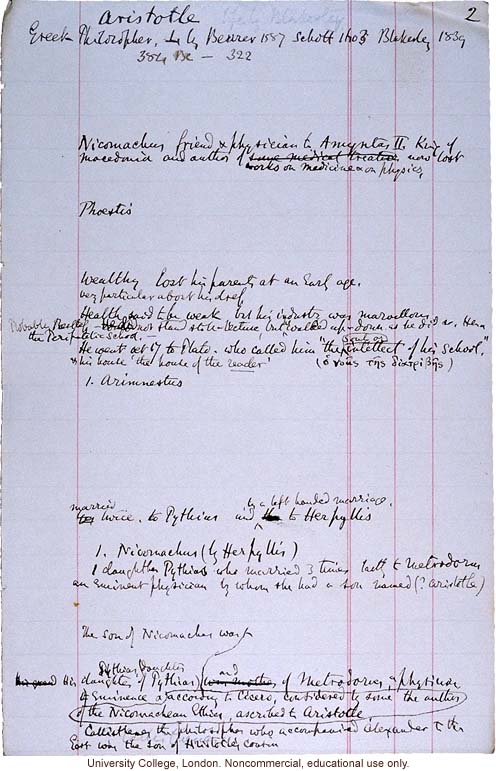 2
Aristotle Life by Blakesley
Greek Philosopher, by Beurer 1587 Schott 1603 Blakesley 1839
384 BC – 322
Nicomachus friend & physician to Amyntas II King of
Macedonia and author of some medical treatises now lost
works on medicine & on physics
Phoestis
Wealthy lost his parents at an Early age.
very particular about his dress
Health said to be weak but his industry was marvellous
Probably Really not stand still - lecture, but walked up & down as he did so. Hence
the Peripatetic School. –
He went aet 17 to Plato - who called him "the intellect of his School,"
soul or
& his house 'the house of the reader' (ὁ νοῦς τῆς διατριβῆς)
1. Arimnestus
married by a left handed marriage.
twice. to Pythias and to Herpyllis
1. Nicomachus (by Herpyllis)
1 daughter Pythias who married 3 times last to Metrodorus
an Eminent physician by whom she had a son named (? Aristotle)
The son of Nicomachus was
Pythias daughter and
His daughter of Pythias of Metrodorus, a physician
of Eminence according to Cicero, considered by some the author
of the Nicomachean Ethics, ascribed to Aristotle
Callisthenes the philosopher who accompanied Alexander to the
East was the son of Aristotles cousin
University College, London. Noncommercial, educational use only.